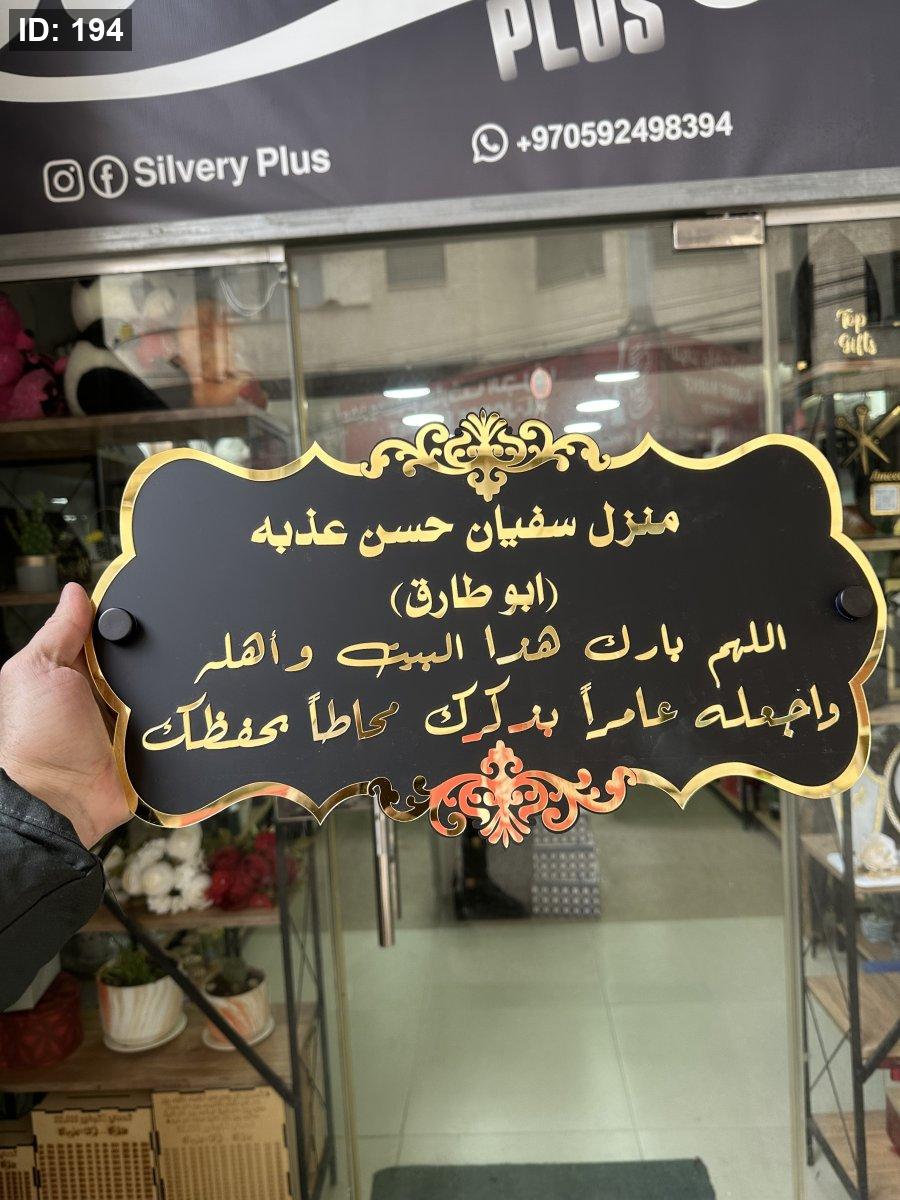 ID: 194
PLUS
Silvery Plus
+970592498394
Top
Gifts
منزل سفيان حسن عذبه
(ابو طارق)
اللهم بارك هذا البيت وأهله
واجعله عامراً بذكرك محاطاً بحفظك